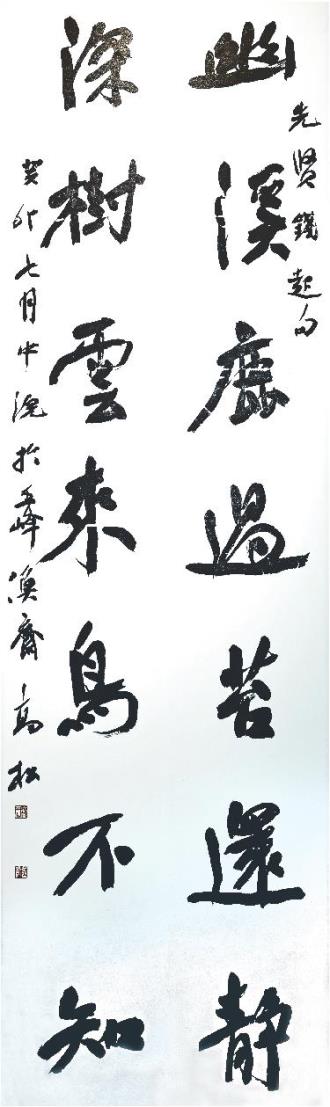 先贤錢起句
幽溪鹿過苔還静
深樹雲來鳥不知
癸卯七月中浣於峰齋高松